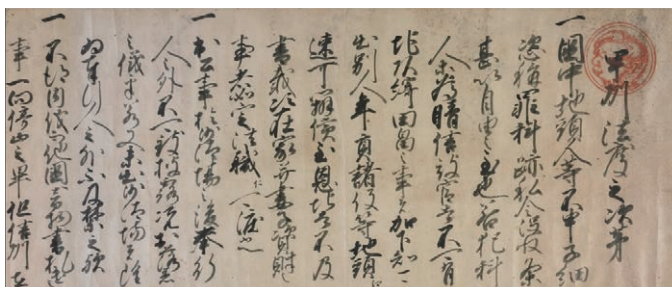 甲州法度之次第
一国中地頭人等不申子細
恣稱罪科跡私令没収条
甚以自由之至也若犯科
人為晴信被官者不可有
地頭綺田畠之事者加下知可
出別人年貢諸役等地頭江
速可弁償至恩地者不及
書載次在家并妻子資財
之事者如定法職江可渡之
一公事出沙汰場之後奉行
人之外不可致披露況於落着
之儀哉若又未出沙汰場以前者
為奉行人之外不及禁之歟
一不得内儀而他国江音物書札遣
事一向停止之畢但信州在